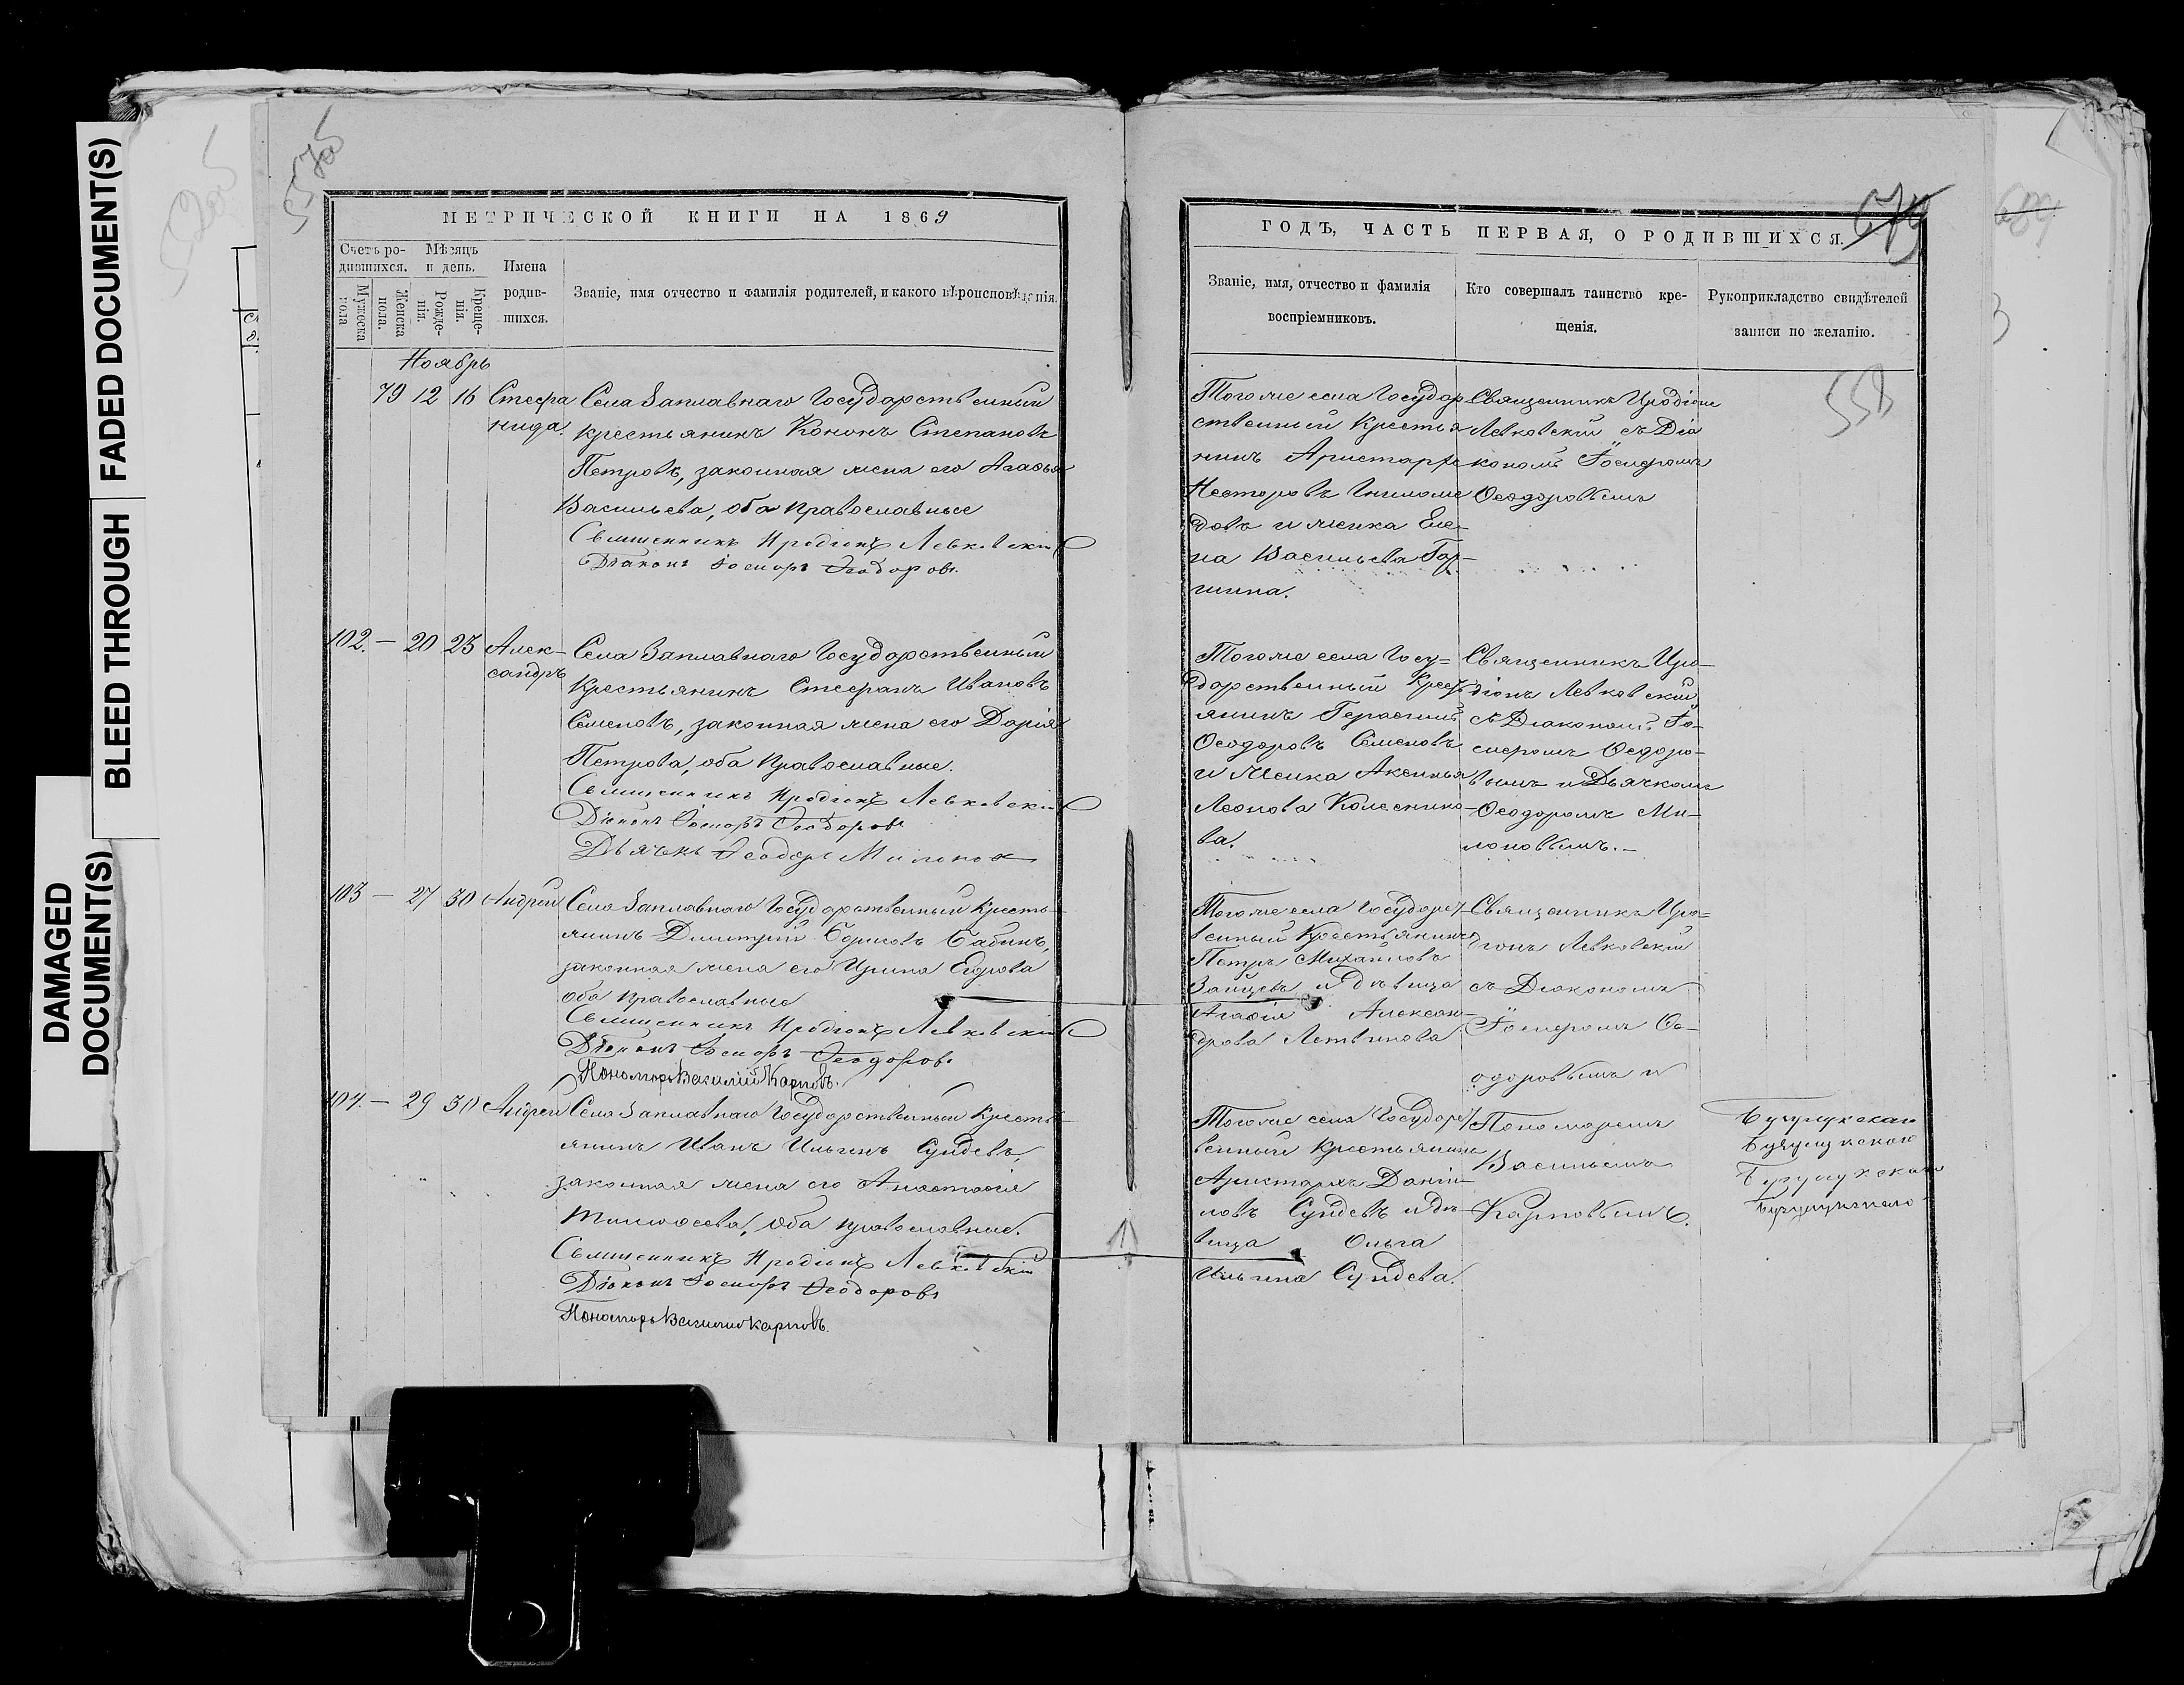 FADED DOCUMENT(S)
BLEED THROUGH
DAMAGED
DOCUMENT(S)
МЕТРИЧЕСКОЙ КНИГИ НА 1869
Счетъ ро-
дившихся.
Мѣсяцъ
и день.
Имена
родив-
шихся.
Мужеска
пола
Женска
пола.
Рожде-
нія.
Креще-
нія.
Званіе, имя отчество и фамилія родителей, и какого вѣроисповѣданія.
Ноябрь
79 12 16 Стефа
нида.
Села Заплавнаго Государственный
крестьянинъ Кононъ Степановъ
Петровъ, законная жена его Агафья
Васильева, оба православные
Священникъ Иродіонъ Левковскій
Діаконъ Іосифъ Ѳеодоровъ.
102. — 20 23 Алек-
сандръ
Села Заплавнаго Государственный
Крестьянинъ Стефанъ Ивановъ
Семеновъ, законная жена его Дарія
Петрова, оба православные.
Священникъ Иродіонъ Левковскій
Діаконъ Іосифъ Ѳеодоровъ
Дьячекъ Ѳеодоръ Милоновъ
103 — 27 30 Андрей
Села Заплавнаго Государственный Кресть-
янинъ Димитрій Борисовъ Бабинъ,
законная жена его Ирина Егорова
оба православные
Священникъ Иродіонъ Левковскій
Діаконъ Іосифъ Ѳеодоровъ.
Пономарь Василій Карповъ.
104. — 29 30 Андрей
Села Заплавнаго Государственный Кресть-
янинъ Иванъ Ильинъ Сундевъ,
законная жена его Анастасія
Тимофеева, оба православные.
Священникъ Иродіонъ Левковскій
Діаконъ Іосифъ Ѳеодоровъ
Пономарь Василій Карповъ.
ГОДЪ, ЧАСТЬ ПЕРВАЯ, О РОДИВШИХСЯ.
679
Званіе, имя, отчество и фамилія
воспріемниковъ.
Кто совершалъ таинство кре-
щенія.
Рукоприкладство свидѣтелей
записи по желанію.
558
Тогоже села Государ-
ственный Крестья
нинъ Аристархъ
Несторовъ
довъ и женка Еле-
на Васильева Гар-
шина.
Священникъ Иродіонъ
Левковскій съ Діа
кономъ Іосифомъ
Ѳеодоровымъ
Тогоже села Госу=
дарственный Крест
янинъ Герасимъ
Ѳеодоровъ Семеновъ
и Женка Аксинья
Леонова Колеснико-
ва.
Священникъ Иро-
діонъ Левковскій
съ Діакономъ Іо-
сифомъ Ѳеодоро-
вымъ и Дьячкомъ
Ѳеодоромъ Ми-
лоновымъ.—
Тогоже села Государст
венный Крестьянинъ
Петръ Михайловъ
Зайцевъ и Дѣвица
Агафія Алексан-
дрова Летвинова
Священникъ Иро=
діонъ Левковскій
съ Діакономъ
Іосифомъ Ѳе-
одоровымъ и
Пономаремъ
Васильемъ
Карповымъ.
Тогоже села Государст
венный Крестьянинъ
Аристархъ Дании-
ловъ Сундевъ и Дѣ-
вица Ольга
Ильина Сундева.
Бузулукскаго